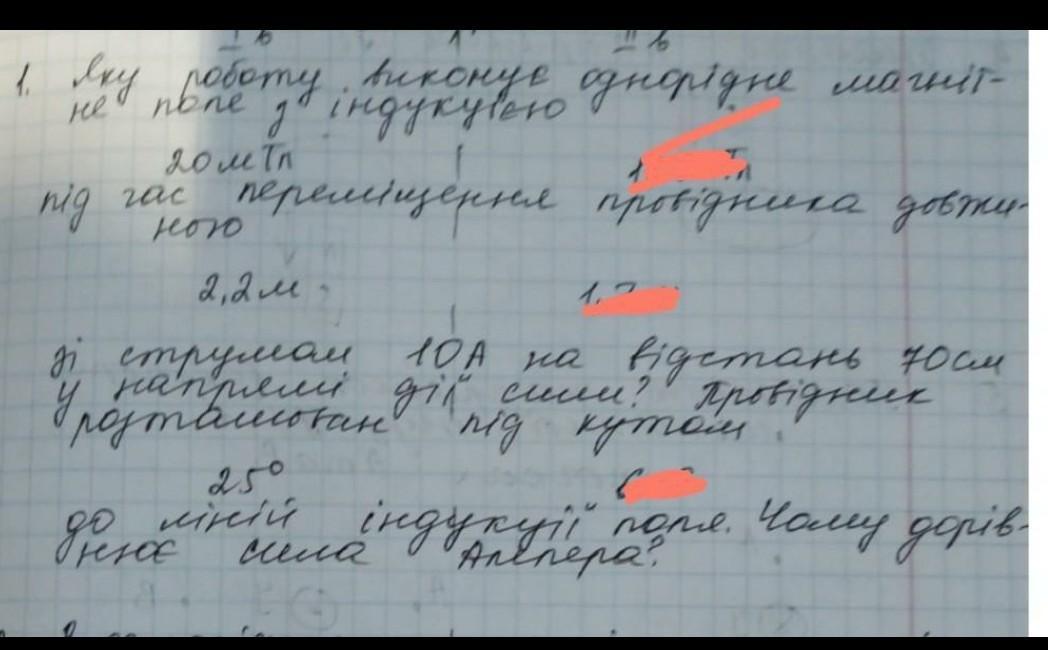 I в II в
1. Яку роботу виконує однорідне магніт-
не поле з індукцією
20 мТл
під час переміщення провідника довжи-
ною
2,2 м
зі струмом 10А на відстань 70см
у напрямі дії сили? Провідник
розташован під кутом
25°
до ліній індукції поля. Чому дорів-
нює сила Ампера?